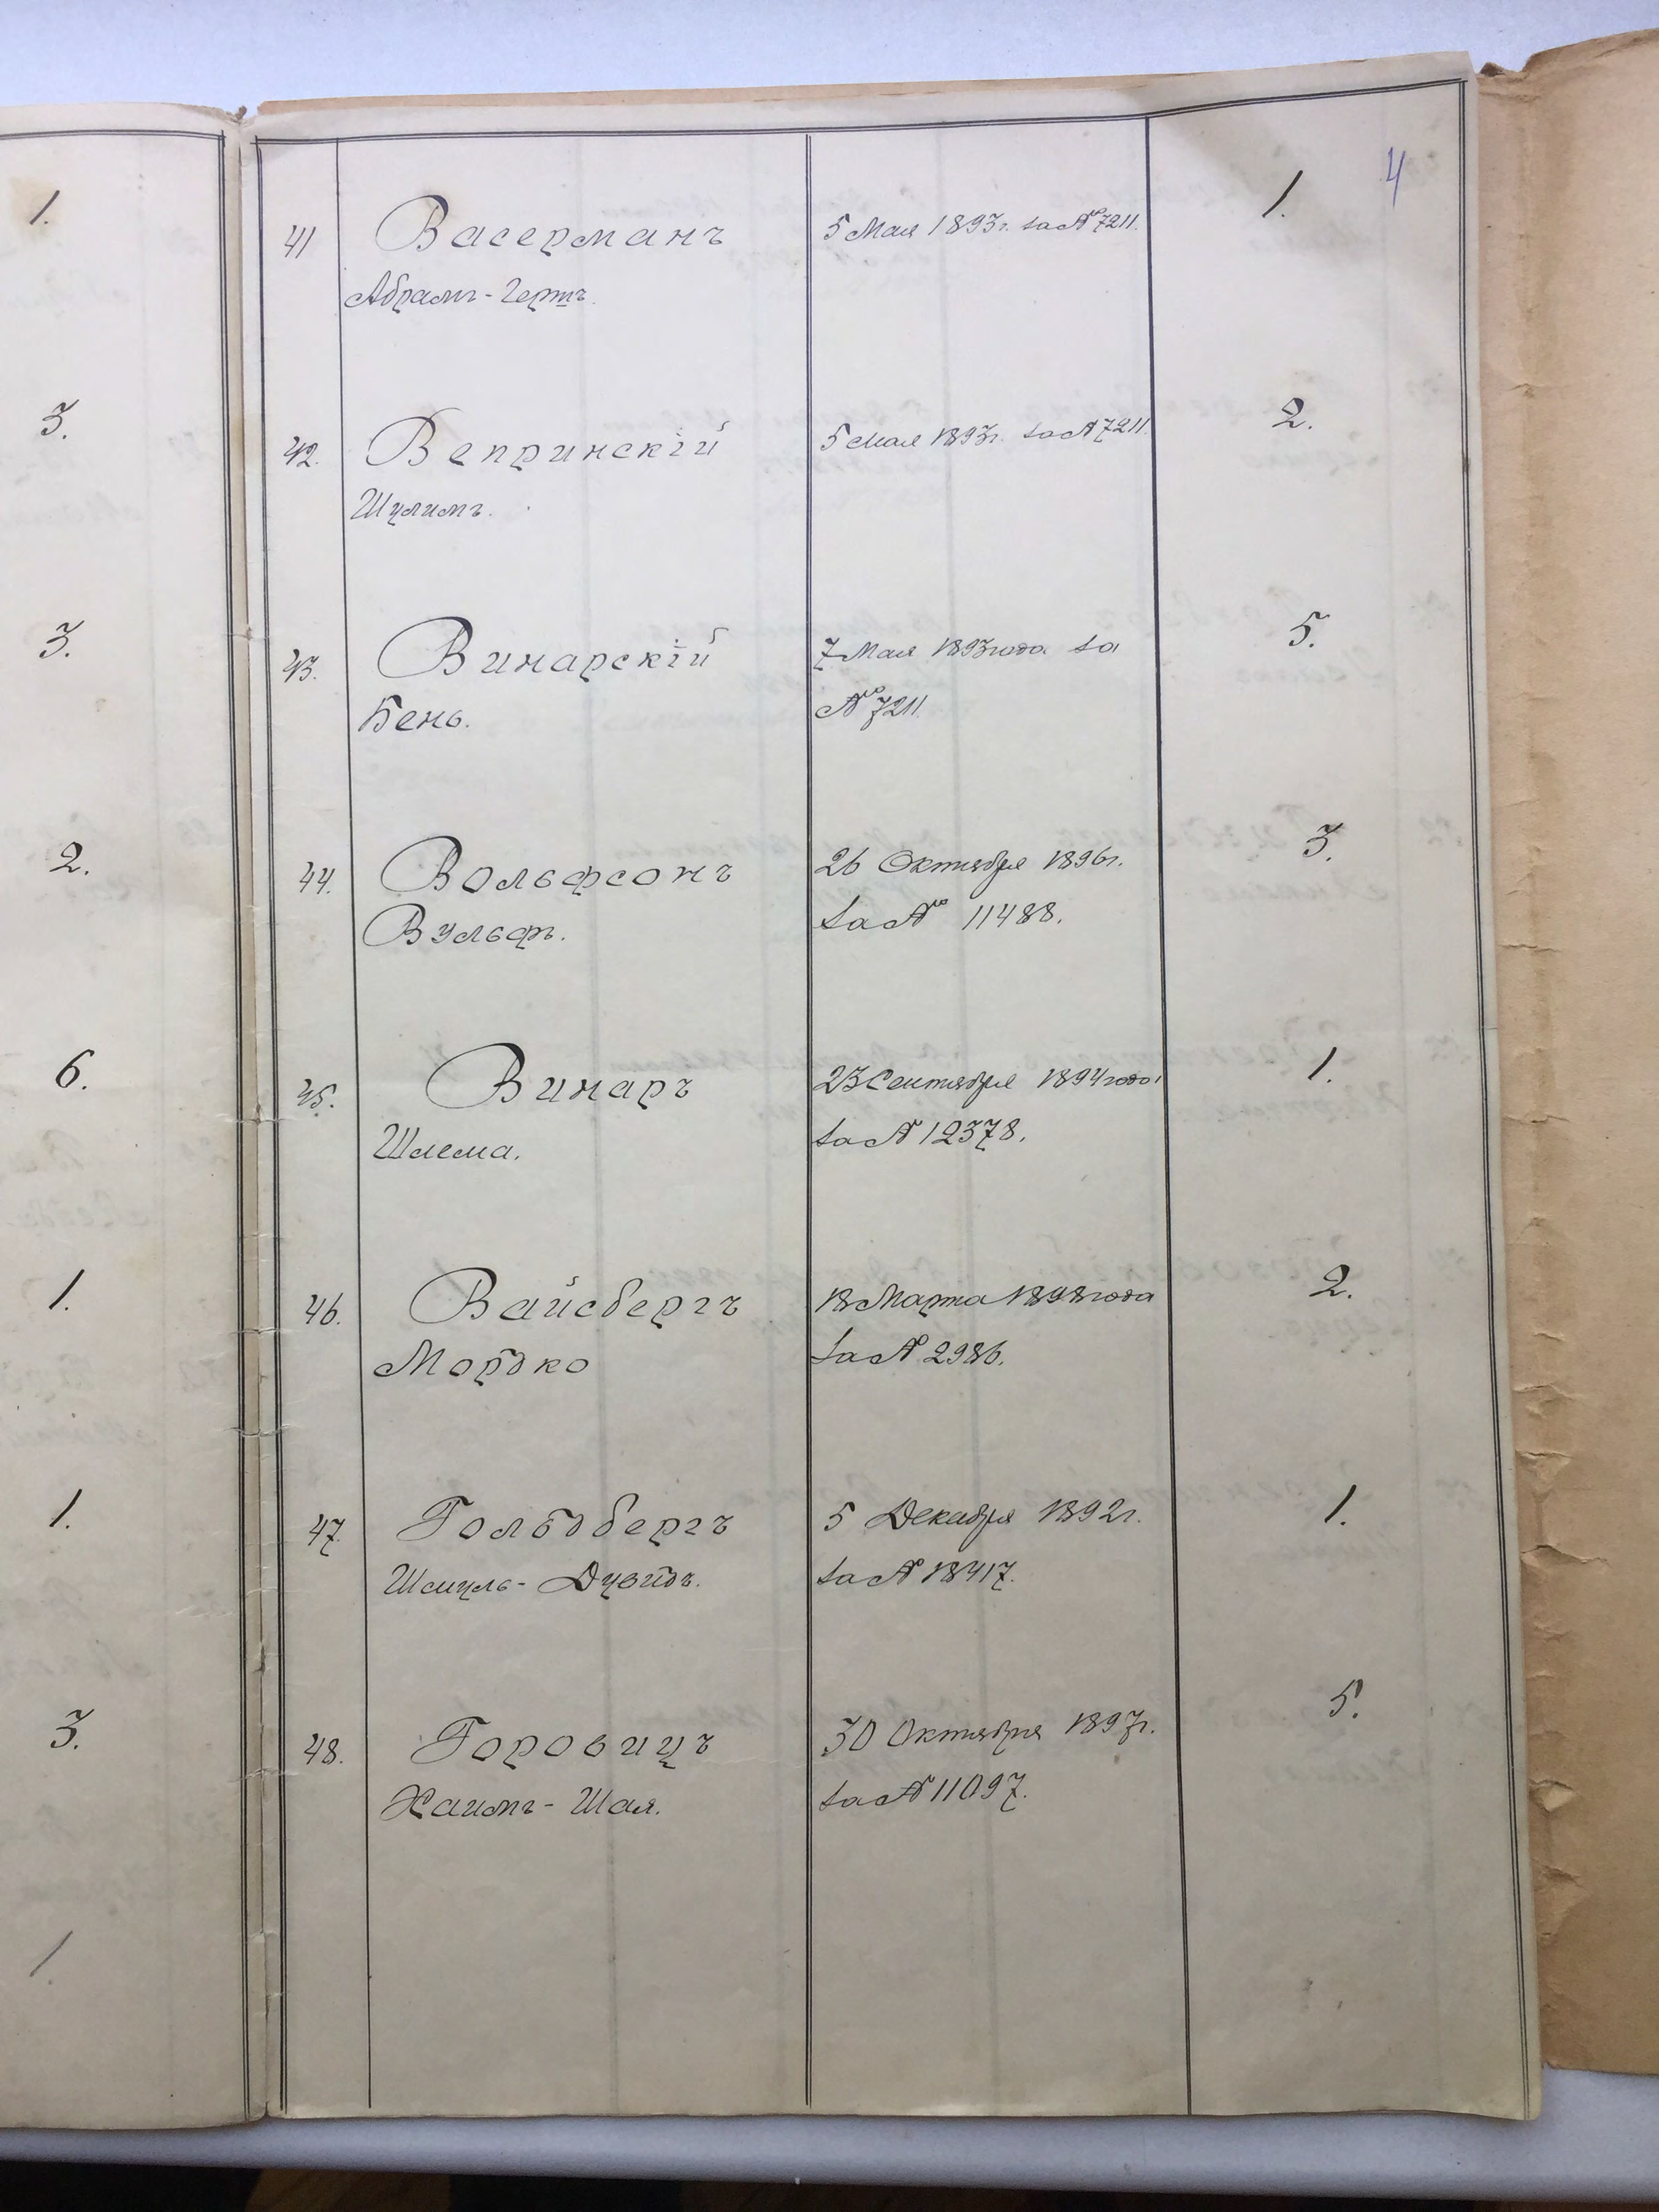 1.
3.
3.
2.
6.
1.
1.
3.
1.
4
41 Васерманъ 5 Мая 1893г. за № 7211. 1.
Абрамъ-Гершъ.
42. Вепринскій 5 Мая 1893г. за № 7211. 2.
Шулимъ.
43. Винарскій 7 Мая 1893 года за 5.
Бень. № 7211.
44. Вольфсонъ 26 Октября 1896г. 3.
Вульфъ. за № 11488.
45. Винаръ 23 Сентября 1894 года 1.
Шлема. за № 12378.
46. Вайсбергъ 18 Марта 1898 года 2.
Мордко за № 2986.
47. Гольдбергъ 5 Декабря 1892г. 1.
Шмуль-Дувидъ. за № 18417.
48. Горовицъ 30 Октября 1897г. 5.
Хаимъ-Шая. за № 11097.